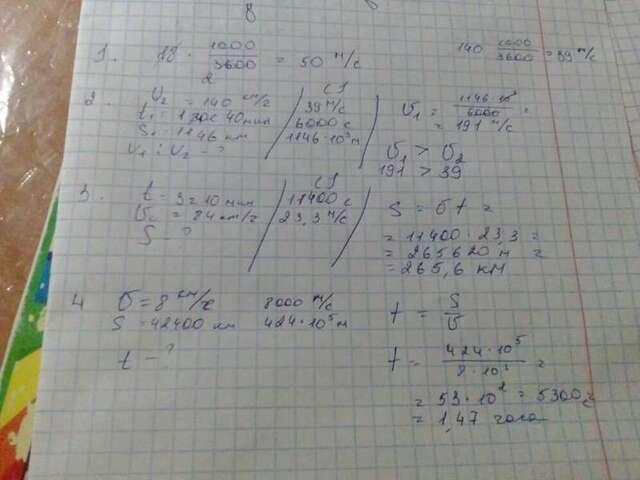 8
1. 18 · 1000/3600 = 50 м/с
140 1000/3600 = 39 м/с
2
2. υ₂ = 140 км/г
t₁ = 1 час 40 мин
S₁ = 1146 км
υ₁ : υ₂ - ?
СИ
39 м/с
6000 с
1146·10³ м
υ₁ = 1146·10³/6000 =
= 191 м/с
υ₁ > υ₂
191 > 39
3. t = 3 = 10 мин
υ = 84 км/г
S - ?
СИ
11400 с
23,3 м/с
S = υt =
= 11400 · 23,3 =
= 265620 м =
= 265,6 км
4 υ = 8 км/с
S = 42400 км
t - ?
8000 м/с
424·10⁵ м
t = S/υ
t = 424·10⁵/8·10³ =
= 53·10² = 5300 с
= 1,47 часа